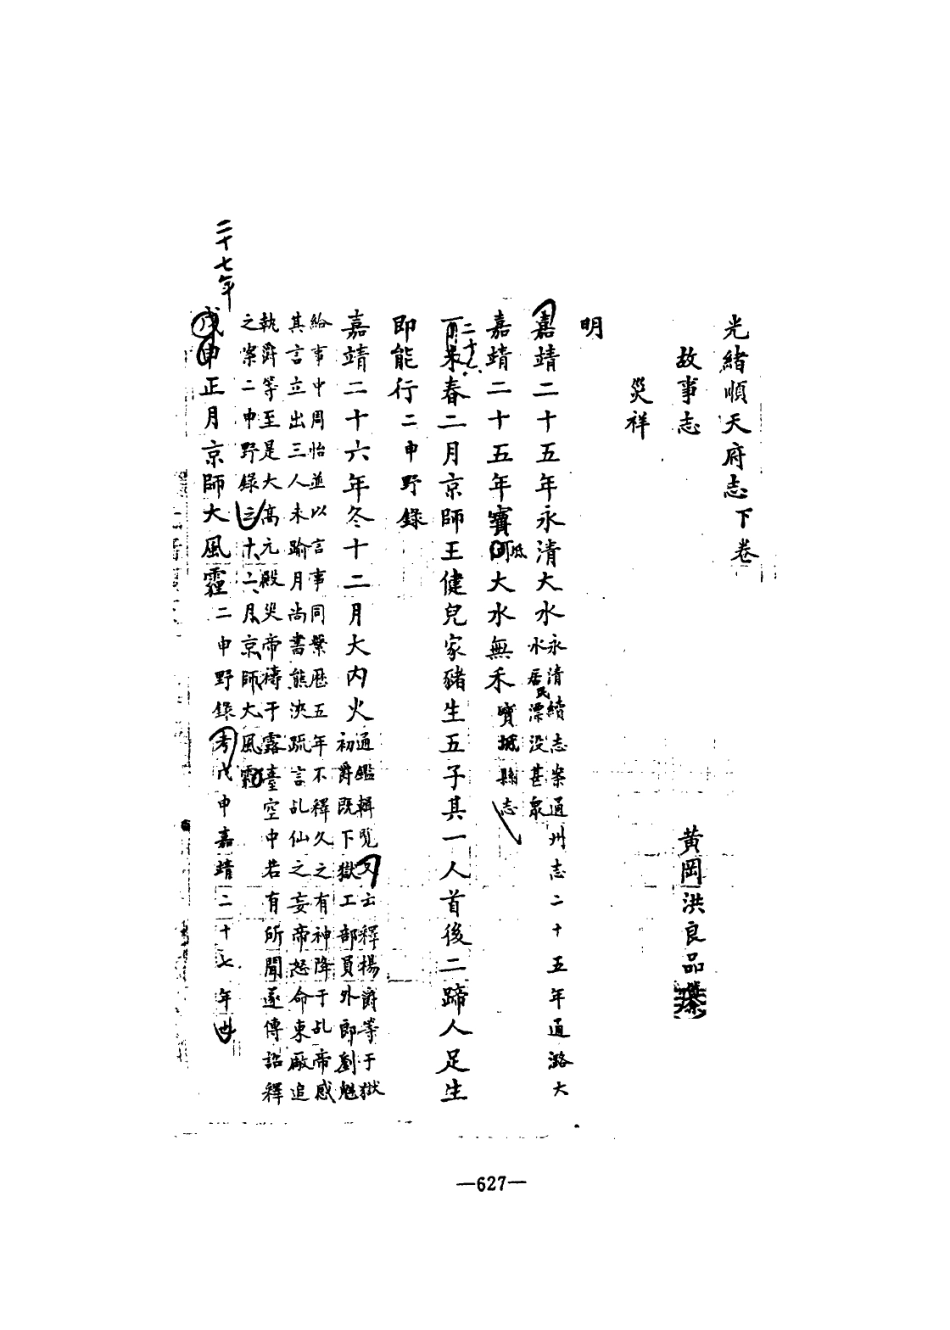 光緒順天府志下卷
故事志
黃岡洪良品
災祥
明
嘉靖二十五年永清大水永清續志案通州志二十五年通潞大水居民漂没甚衆
嘉靖二十五年寶坻大水無禾寶坻縣志
春二月京師王健兒家豬生五子其一人首後二蹄人足生
即能行二申野錄
嘉靖二十六年冬十二月大内火通鑑輯覽云釋楊爵等于獄
初爵既下獄工部員外郎劉魁
給事中周怡並以言事同繫歷五年不釋久之有神降于乩帝感
其言立出三人未踰月尚書熊浹疏言乩仙之妄帝怒命東廠追
執爵等至是大高元殿災帝禱于露臺空中若有所聞遂傳詔釋
之案二申野錄三十二月京師大風霾
二十七年
戊申正月京師大風霾二申野錄考戊申嘉靖二十七年也
—627—